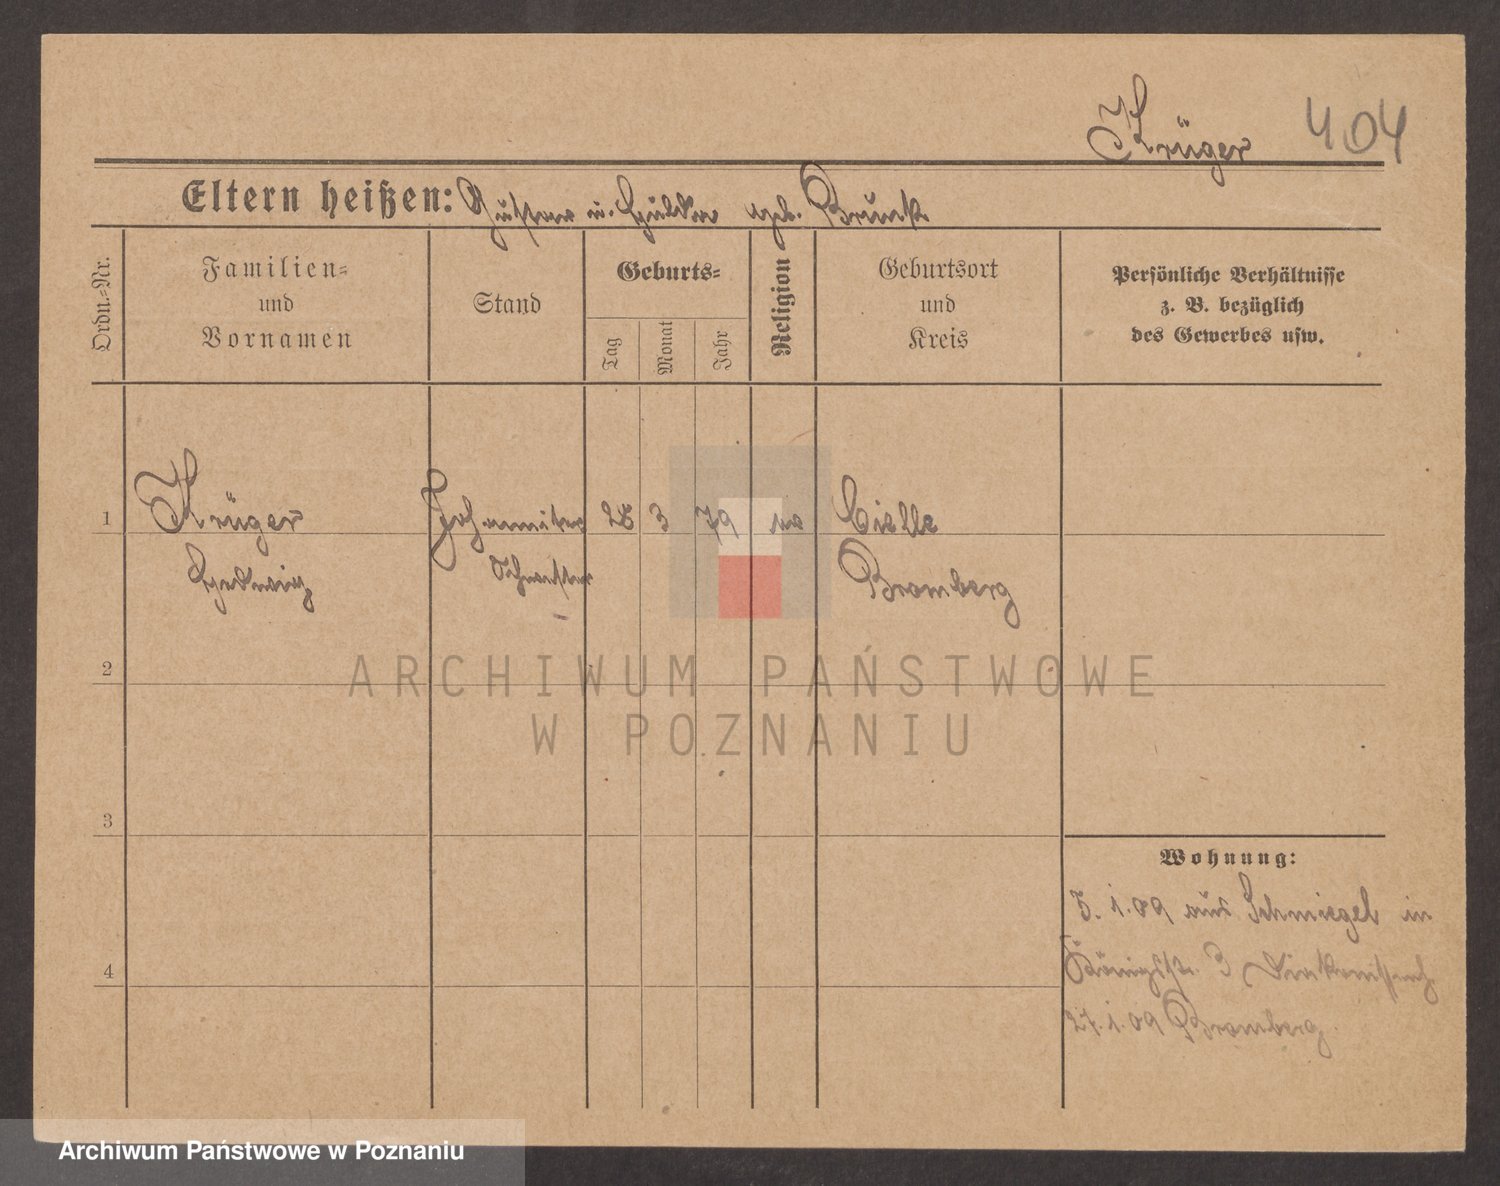 Krüger 404
Eltern heißen: Gustav u. Hulda geb. Brunk
Ordn.-Nr.
Familien-
und
Vornamen
Stand
Geburts-
Tag
Monat
Jahr
Religion
Geburtsort
und
Kreis
Persönliche Verhältnisse
z. B. bezüglich
des Gewerbes usw.
1 Krüger Johanniter 28 3 79 Cielle
Hedwig Schwester Bromberg
2
ARCHIWUM PAŃSTWOWE
W POZNANIU
3
Wohnung:
5. 1. 09 aus Schmiegel in
Königsstr. 3
4
27. 1. 09 Bromberg
Archiwum Państwowe w Poznaniu